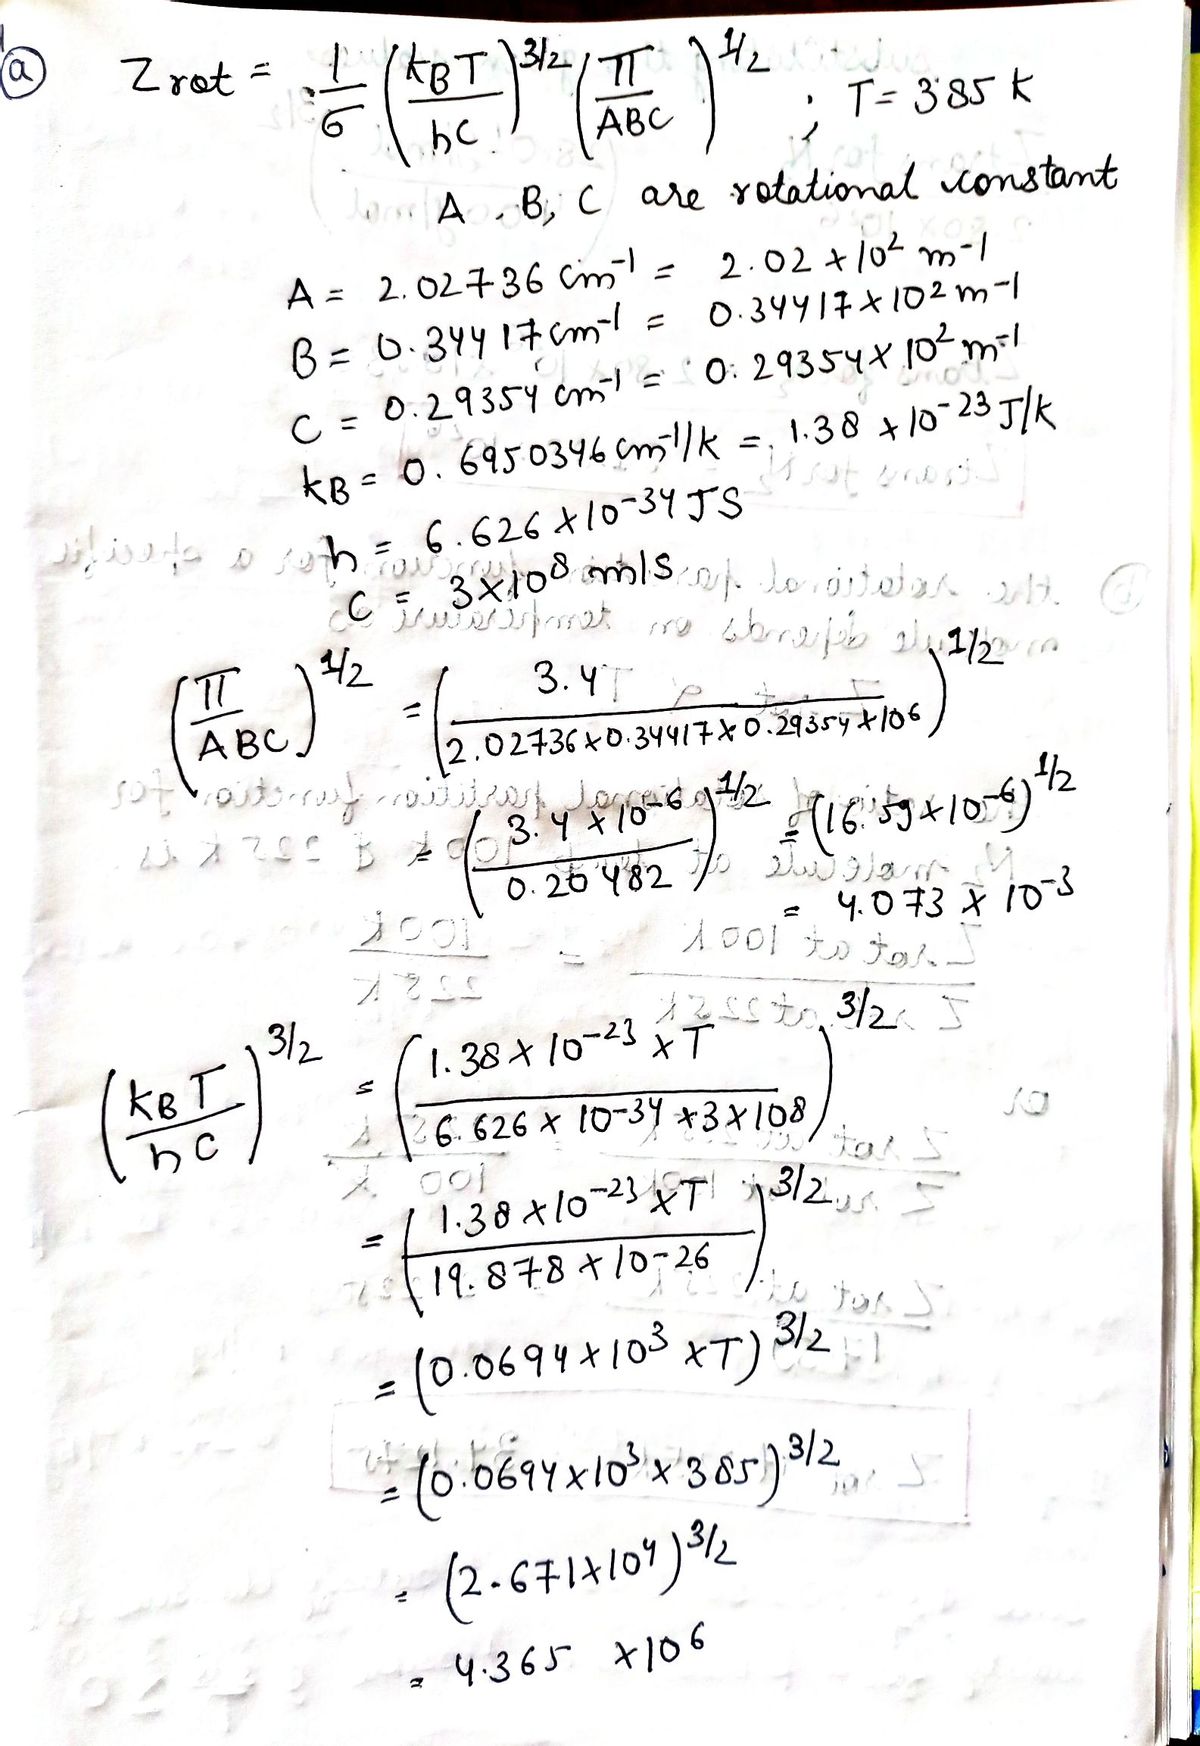 a
Zrot = 1/σ (kBT/hc)^3/2 (π/ABC)^1/2 ; T = 385 K
A, B, C are rotational constant
A = 2.02736 cm^-1 = 2.02 × 10^2 m^-1
B = 0.34417 cm^-1 = 0.34417 × 10^2 m^-1
C = 0.29354 cm^-1 = 0.29354 × 10^2 m^-1
kB = 0.6950346 cm^-1/K = 1.38 × 10^-23 J/K
h = 6.626 × 10^-34 JS
C = 3×10^8 m/s
(π/ABC)^1/2 = (3.4/2.02736×0.34417×0.29354×10^6)^1/2
= (3.4 × 10^-6/0.20482)^1/2 = (16.59×10^-6)^1/2
= 4.073 × 10^-3
(kBT/hC)^3/2 = (1.38 × 10^-23 × T/6.626 × 10^-34 × 3 × 10^8)^3/2
= (1.38 × 10^-23 × T/19.878 × 10^-26)^3/2
= (0.0694 × 10^3 × T)^3/2
= (0.0694 × 10^3 × 385)^3/2
= (2.671×10^4)^3/2
= 4.365 × 10^6